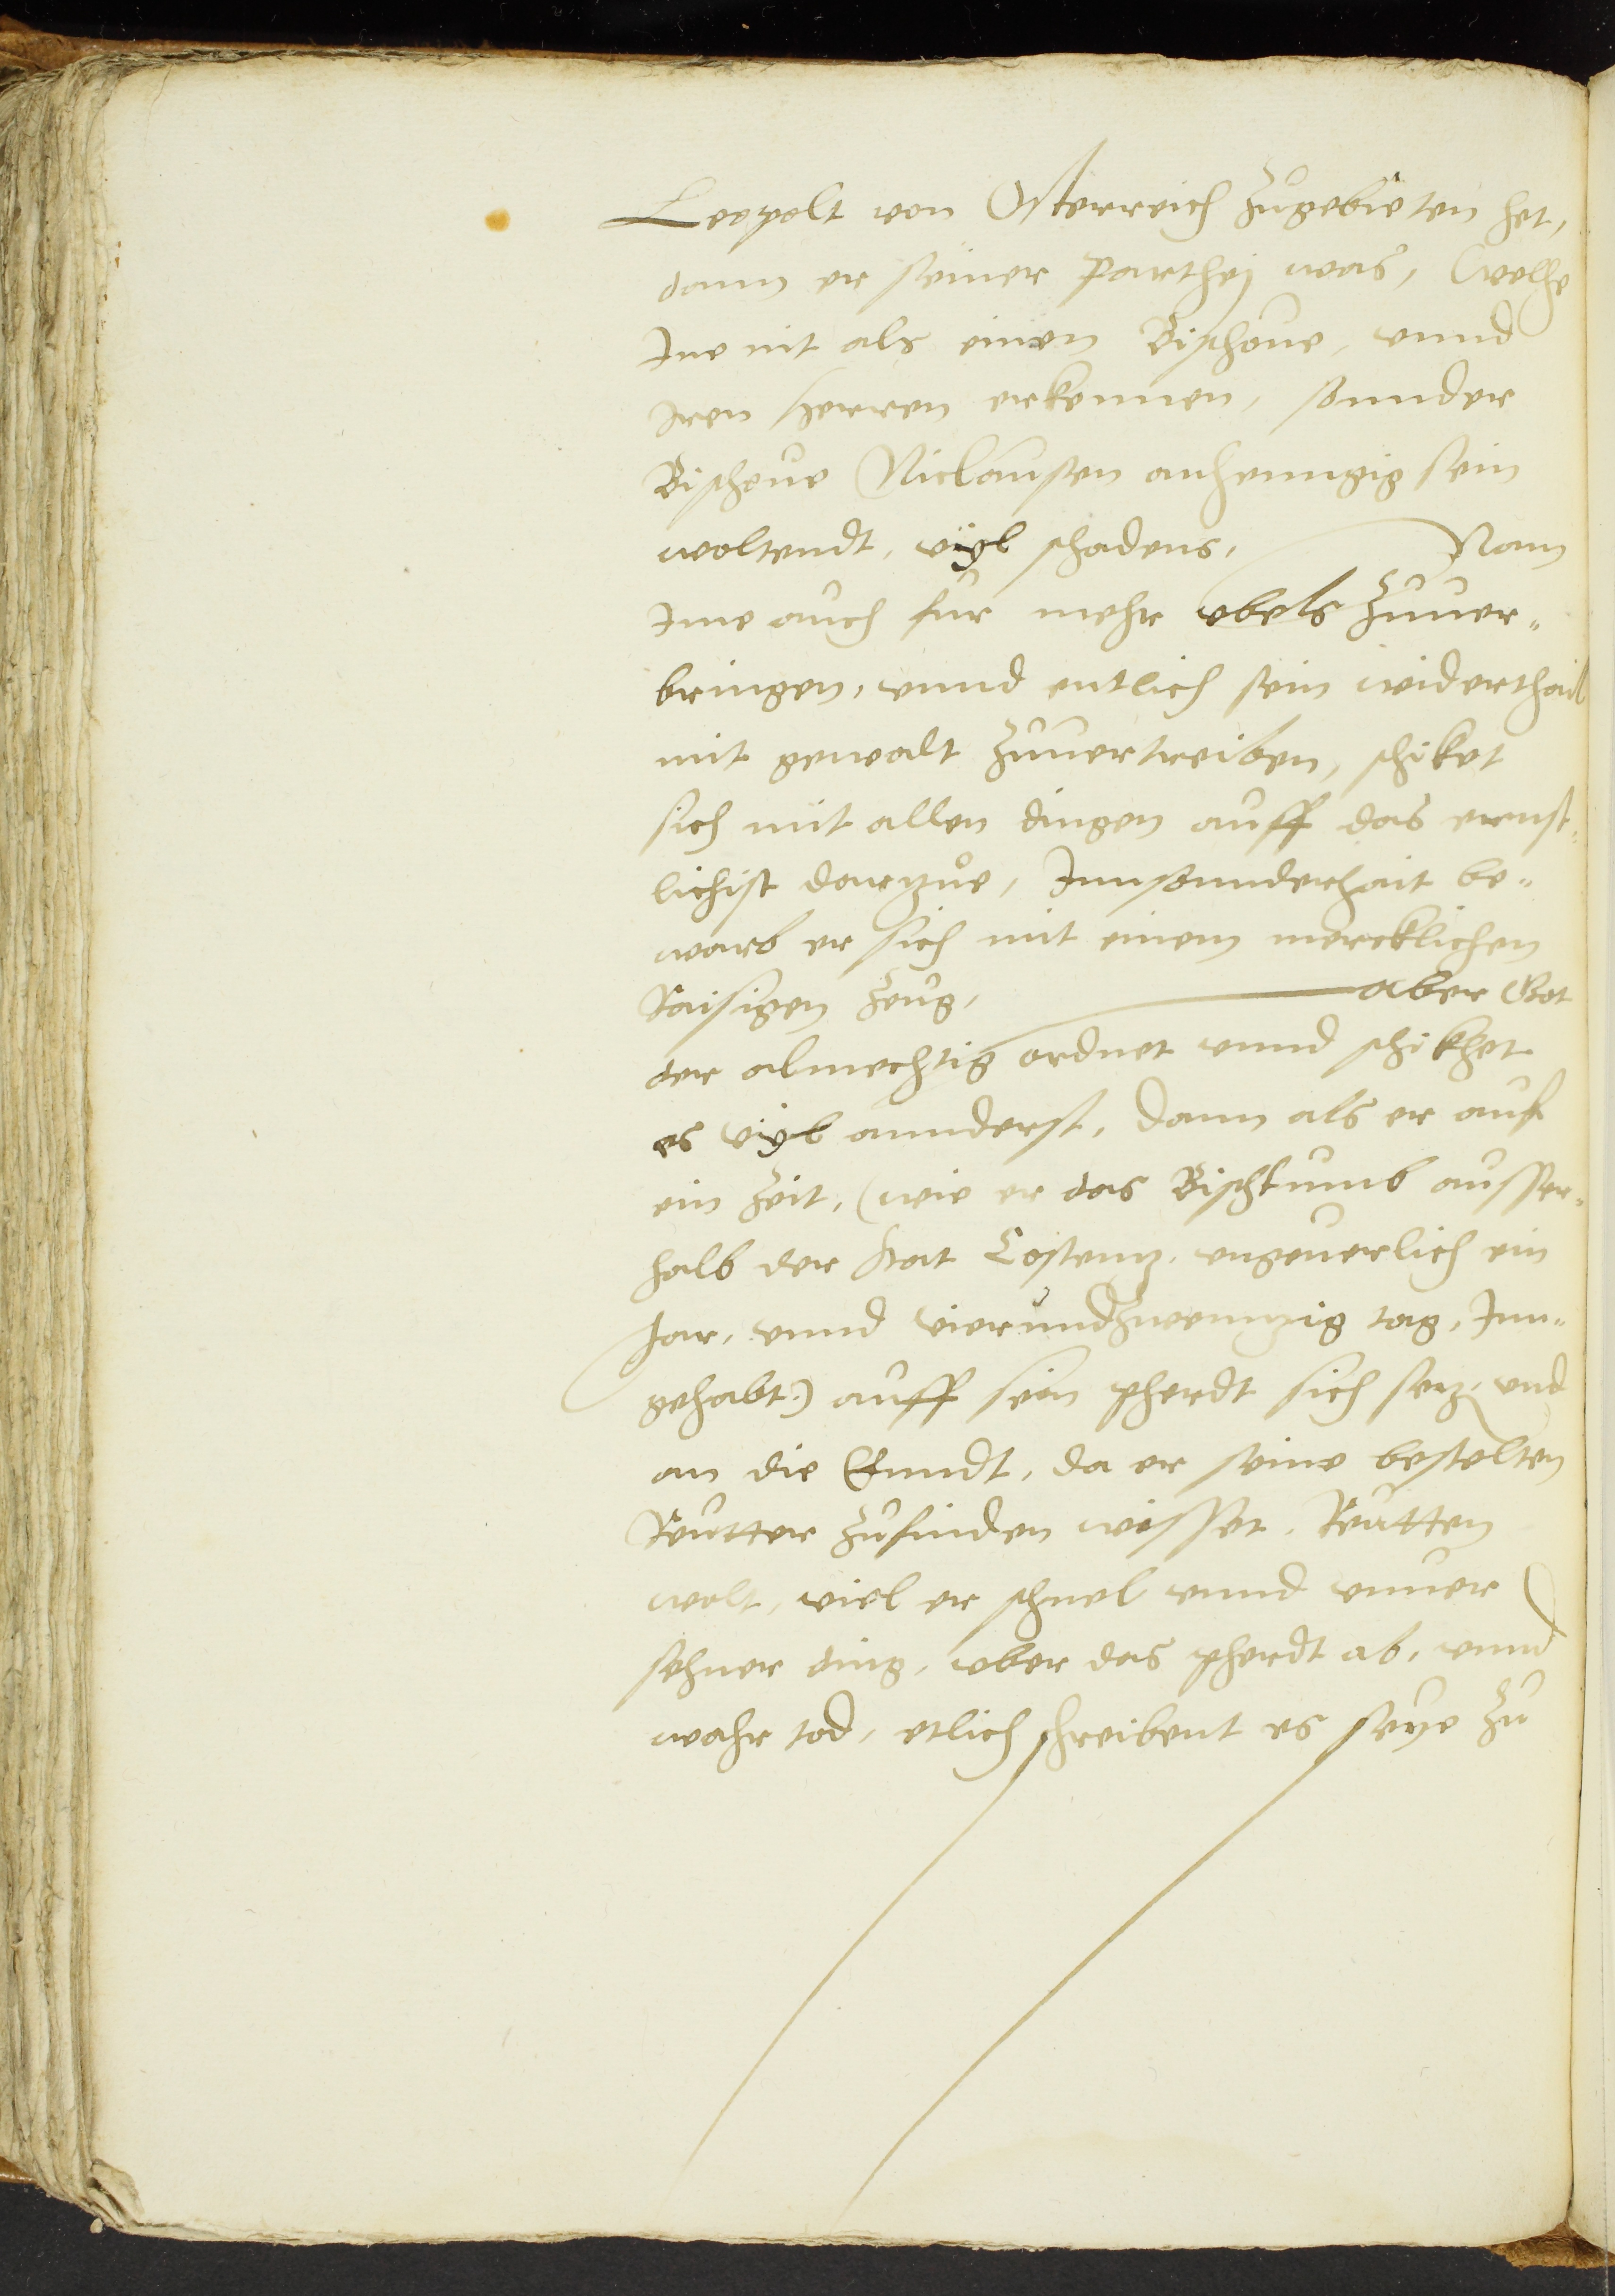 Leopolt von Osterreich zugebieten het,
dann er seiner Parthej was, (welche
Jne nit als einen Bischove, vnnd
Jren Herren erkennen, sonnder
Bischove Niclausen anhenngig sein
woltendt, vÿl schadens, Nam
Jme auch fur mehr vbels zuuer-
bringen, vnnd entlich sein widerthail
mit gewalt zuuertreiben, schiket
sich mit allen dingen auff das ernst-
lichist darzuͦe, Jnnsonnderhait be-
warb er sich mit einem mercklichen
Raisigen zeug, aber Got
der almechtig ordnet vnnd schikhet
es vÿl annderst, dann als er auf
ein zeit, (wie er das Bischtumb ausser-
halb der stat Costentz, vngeuerlich ein
Jar, vnnd vierundzwenntzig tag, Jnn-
gehabt) auff sein pherdt sich setz, vnd
an die Enndt, da er seine bestelten
Reutter zufinden wisset, Reutten
wolt, viel er schnel vnnd vnuer
sehner ding, vber das pherdt ab, vnnd
wahr tod, etlich schreibent es seye zu